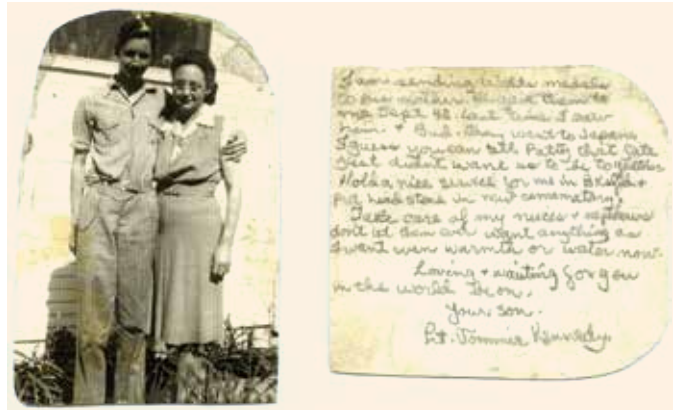 I am sending Walts medals
to his mother. He gave them to
me Sept 42. last time I saw
him. + Bud. they went to Japan.
I guess you can tell Patty that fate
just didnt want us to be together.
Hold a nice service for me in +
put head stone in new cementary.
Take care of my nieces + nephews
dont let them ever want anything as
I want even warmth or water now.
Loving + waiting for you
in the world beyon.
Your son.
Lt. Tommie Kennedy.